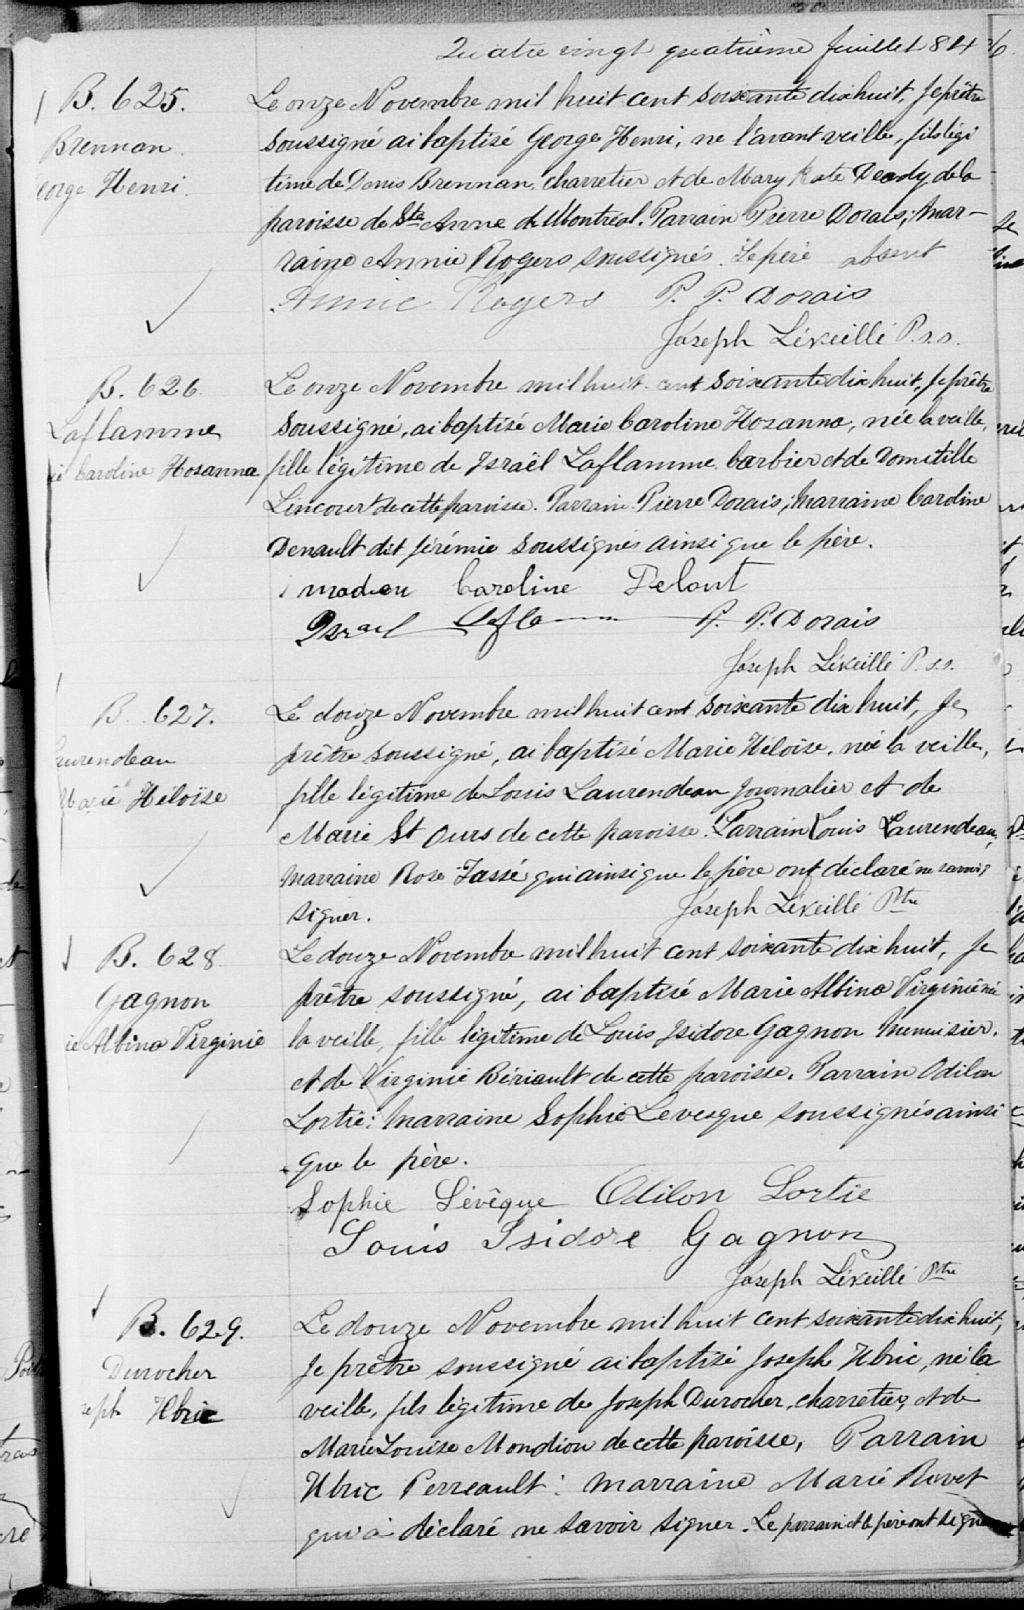 Quatre vingt quatrième feuillet 84
B. 625.
Brennan
eorge Henri
Le onze Novembre mil huit cent soixante dixhuit, Je prêtre
soussigné ai baptisé George Henri, ne l'avant veille, fils légi
time de Denis Brennan, charretier et de Mary Kate Deady de la
paroisse de Ste Anne de Montreal. Parrain Pierre Dorais; mar-
raine Annie Rogers soussignés. Le père absent
Annie Rogers P. P. Dorais
Joseph Léveillé P.s.s.
B. 626.
Laflamme
ie Caroline Hosanna
Le onze Novembre mil huit cent soixante dix huit, Je prêtre
soussigné, ai baptisé Marie Caroline Hozanna, née la veille,
fille légitime de Israël Laflamme barbier et de Domitille
Lincourt de cette paroisse. Parrain Pierre Dorais; Marraine Caroline
Denault dit Jérémie soussignés ainsi que le père.
Caroline Delout
Israel Lafla P. P. Dorais
Joseph Léveillé P.s.s.
B. 627.
Laurendeau
Marie Héloïse
Le douze Novembre mil huit cent soixante dix huit, Je
prêtre soussigné, ai baptisé Marie Héloïse, née la veille,
fille légitime de Louis Laurendeau journalier et de
Marie St Ours de cette paroisse. Parrain Louis Laurendeau,
marraine Rose Jassé qui ainsi que le père ont déclaré ne savoir
signer. Joseph Léveillé Ptre
B. 628
Gagnon
ie Albina Virginie
Le douze Novembre mil huit cent soixante dix huit, Je
prêtre soussigné, ai baptisé Marie Albina Virginie née
la veille, fille légitime de Louis Isidore Gagnon Menuisier.
et de Virginie Bériault de cette paroisse. Parrain Odilon
Lortie: Marraine Sophie Levesque soussignés ainsi
que le père.
Sophie Lévêque Odilon Lortie
Louis Isidore Gagnon
Joseph Léveillé Ptre
B. 629.
Durocher
seph Ulric
Le douze Novembre mil huit cent soixante dix huit,
Je prêtre soussigné ai baptisé Joseph Ulric, né la
veille, fils légitime de Joseph Durocher, charretier, et de
Marie Louise Mondion de cette paroisse, Parrain
Ulric Perreault: Marraine Marie Rivet
qui a déclaré ne savoir signer. Le parrain et le père ont signé